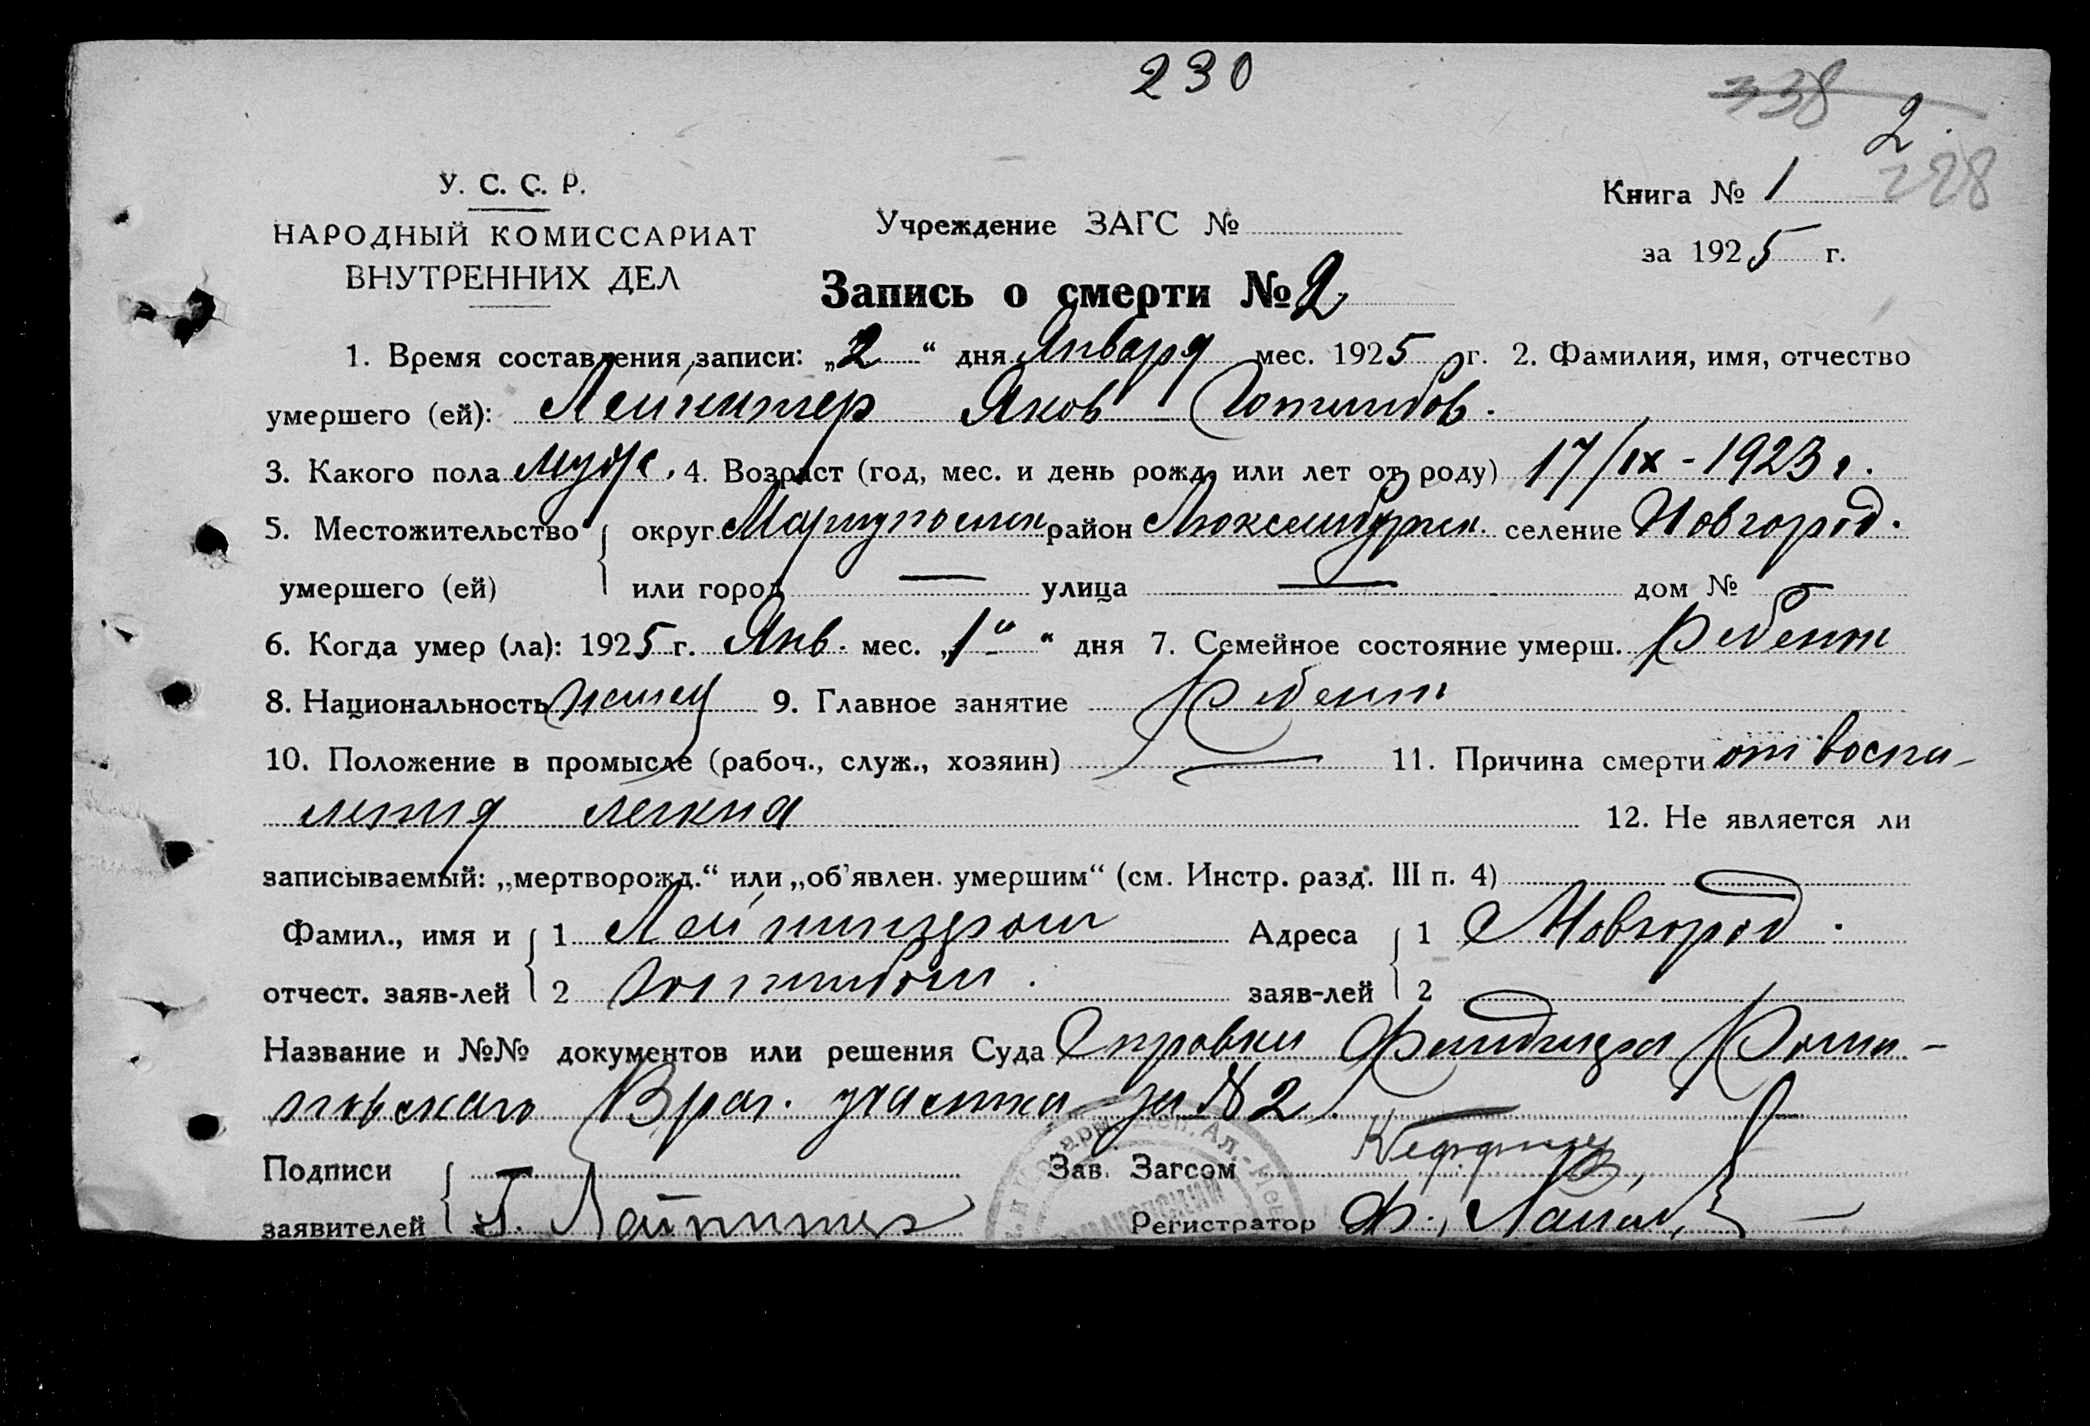 230
338
2
228
У. С. С. Р.
НАРОДНЫЙ КОМИССАРИАТ
ВНУТРЕННИХ ДЕЛ
Учреждение ЗАГС №
Книга № 1
за 1925 г.
Запись о смерти № 2
1. Время составления записи: „2“ дня Января мес. 1925 г. 2. Фамилия, имя, отчество
умершего (ей): Яков Готлибов.
3. Какого пола муж., 4. Возраст (год, мес. и день рожд. или лет от роду) 17/IX - 1923 г.
5. Местожительство округ Мариупольск район Люксембургск. селение Новгород.
умершего (ей) или город — улица — дом № —
6. Когда умер (ла): 1925 г. Янв. мес. „1“ дня 7. Семейное состояние умерш. Ребенок
8. Национальность немец 9. Главное занятие Ребенок
10. Положение в промысле (рабоч., служ., хозяин) — 11. Причина смерти от воспа-
ления легких
12. Не является ли
записываемый: „мертворожд.“ или „об'явлен. умершим“ (см. Инстр. разд. III п. 4) —
Фамил., имя и 1 Адреса 1 Новгород.
отчест. заяв-лей 2 Готлибом. заяв-лей 2
Название и №№ документов или решения Суда Справки Фельдшера Рома-
новского Врач. участка за № 2.
Подписи Зав. Загсом
заявителей Г. Регистратор Ф.